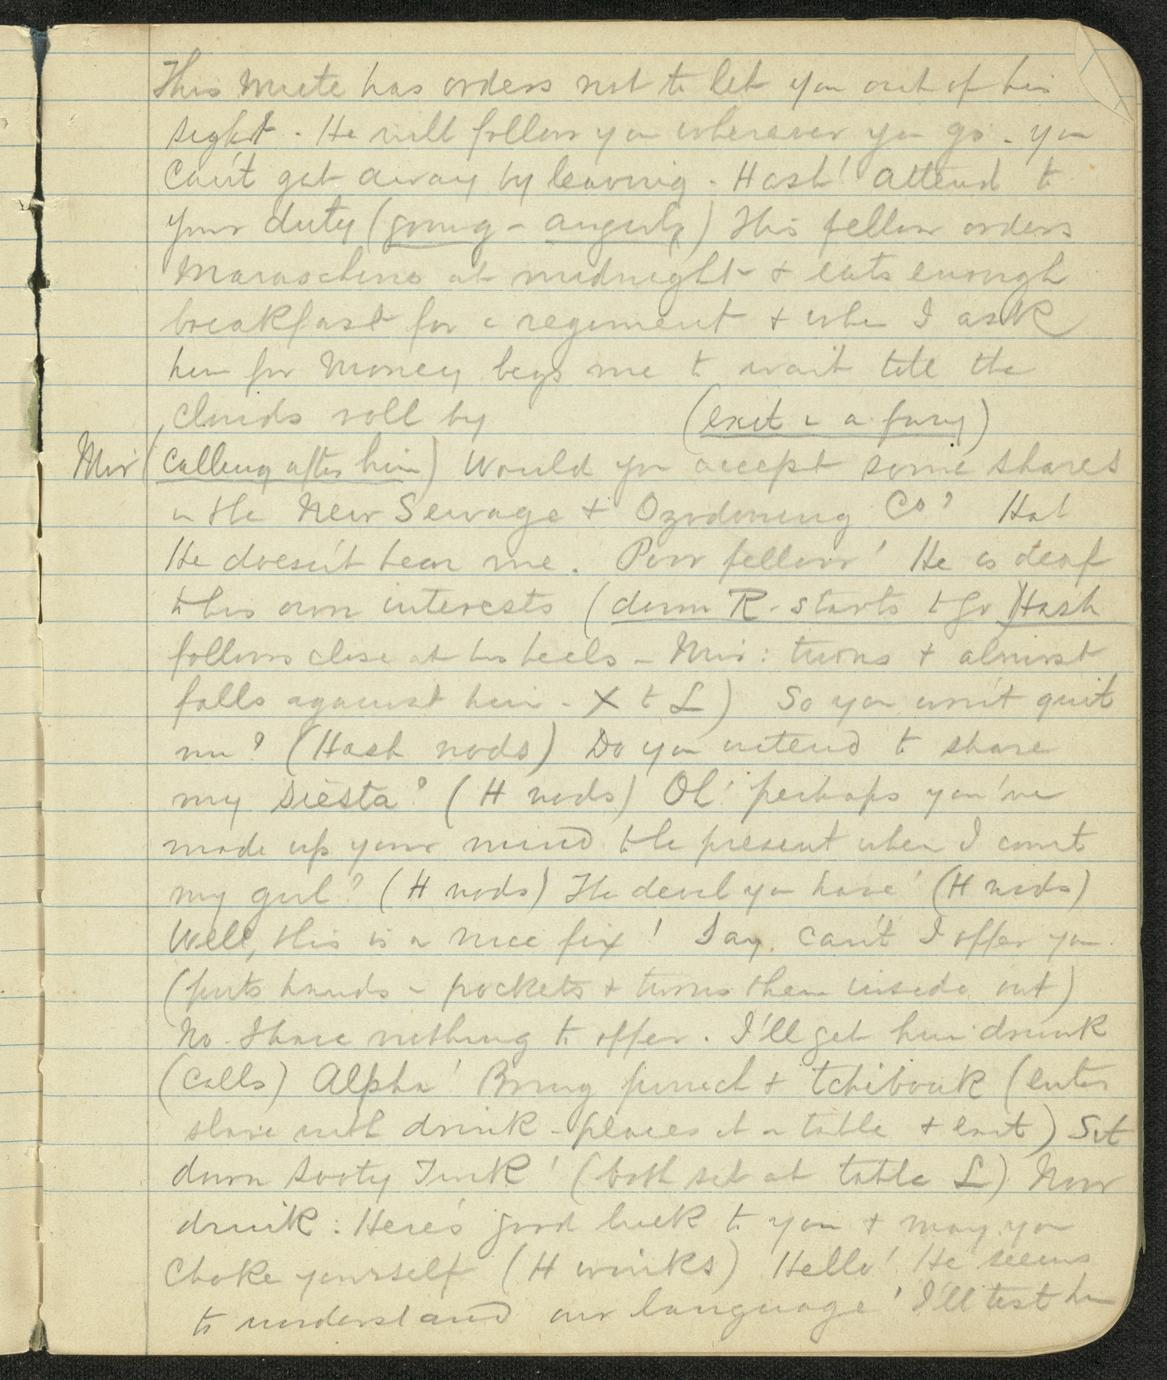 This mute has orders not to let you out of his
sight. He will follow you wherever you go. You
can't get away by leaving. Hash! Attend to
your duty (going - angerly) This fellow orders
Maraschino at midnight & eats enough
breakfast for a regiment & when I ask
him for money begs me to wait till the
clouds roll by (exit in a fury)
Mir (calling after him) Would you accept some shares
in the New Sewage & Ozodoning Co? Ha!
He doesn't hear me. Poor fellow! He is deaf
to his own interests (down R. starts to go) Hash
follows close at his heels - Mir: turns & almost
falls against him - X to L) So you won't quit
me? (Hash nods) Do you intend to share
my siesta? (H nods) Oh! perhaps you've
made up your mind to be present when I court
my girl? (H nods) The devil you have! (H nods)
Well, this is a nice fix! Say, can't I offer you
(puts hands in pockets & turns them inside out)
No. I have nothing to offer. I'll get him drunk
(calls) Alpha! Bring punch & tchibouk (enter
slave with drink - places it on table & exit) Sit
down Sooty Turk! (both sit at table L) Now
drink: Here's good luck to you & may you
choke yourself (H winks) Hello! He seems
to understand our language! I'll test him